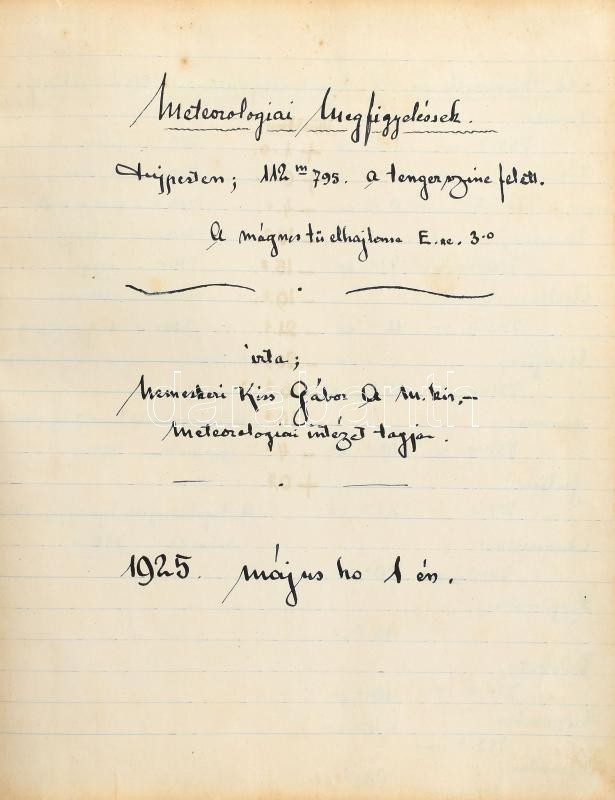 Meteorologiai Megfigyelések.
Ujpesten; 112 m 795. a tenger szine felett.
A mágnes tű elhajlása E. ne. 3.0
irta;
darabanth
Nemeskéri Kiss Gábor A M. kir.–
Meteorologiai intézet tagja.
1925. május ho 1 én.